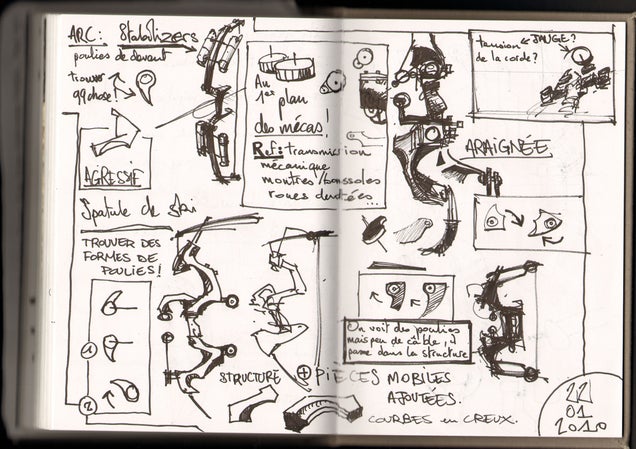 ARC: Stabilizers
poulies de devant
trouver
qqchose!
AGRESSIF
Spatule de ski
TROUVER DES
FORMES DE
POULIES!
1
2
Au
1er plan
des mécas!
Ref: transmission
mécanique
montres/boussoles
roues dentées...
STRUCTURE
+ PIÈCES MOBILES
AJOUTÉES.
COURBES en CREUX.
JAUGE?
tension
de la corde?
ARAIGNÉE
On voit des poulies
mais peu de câble, il
passe dans la structure
22
01
2010